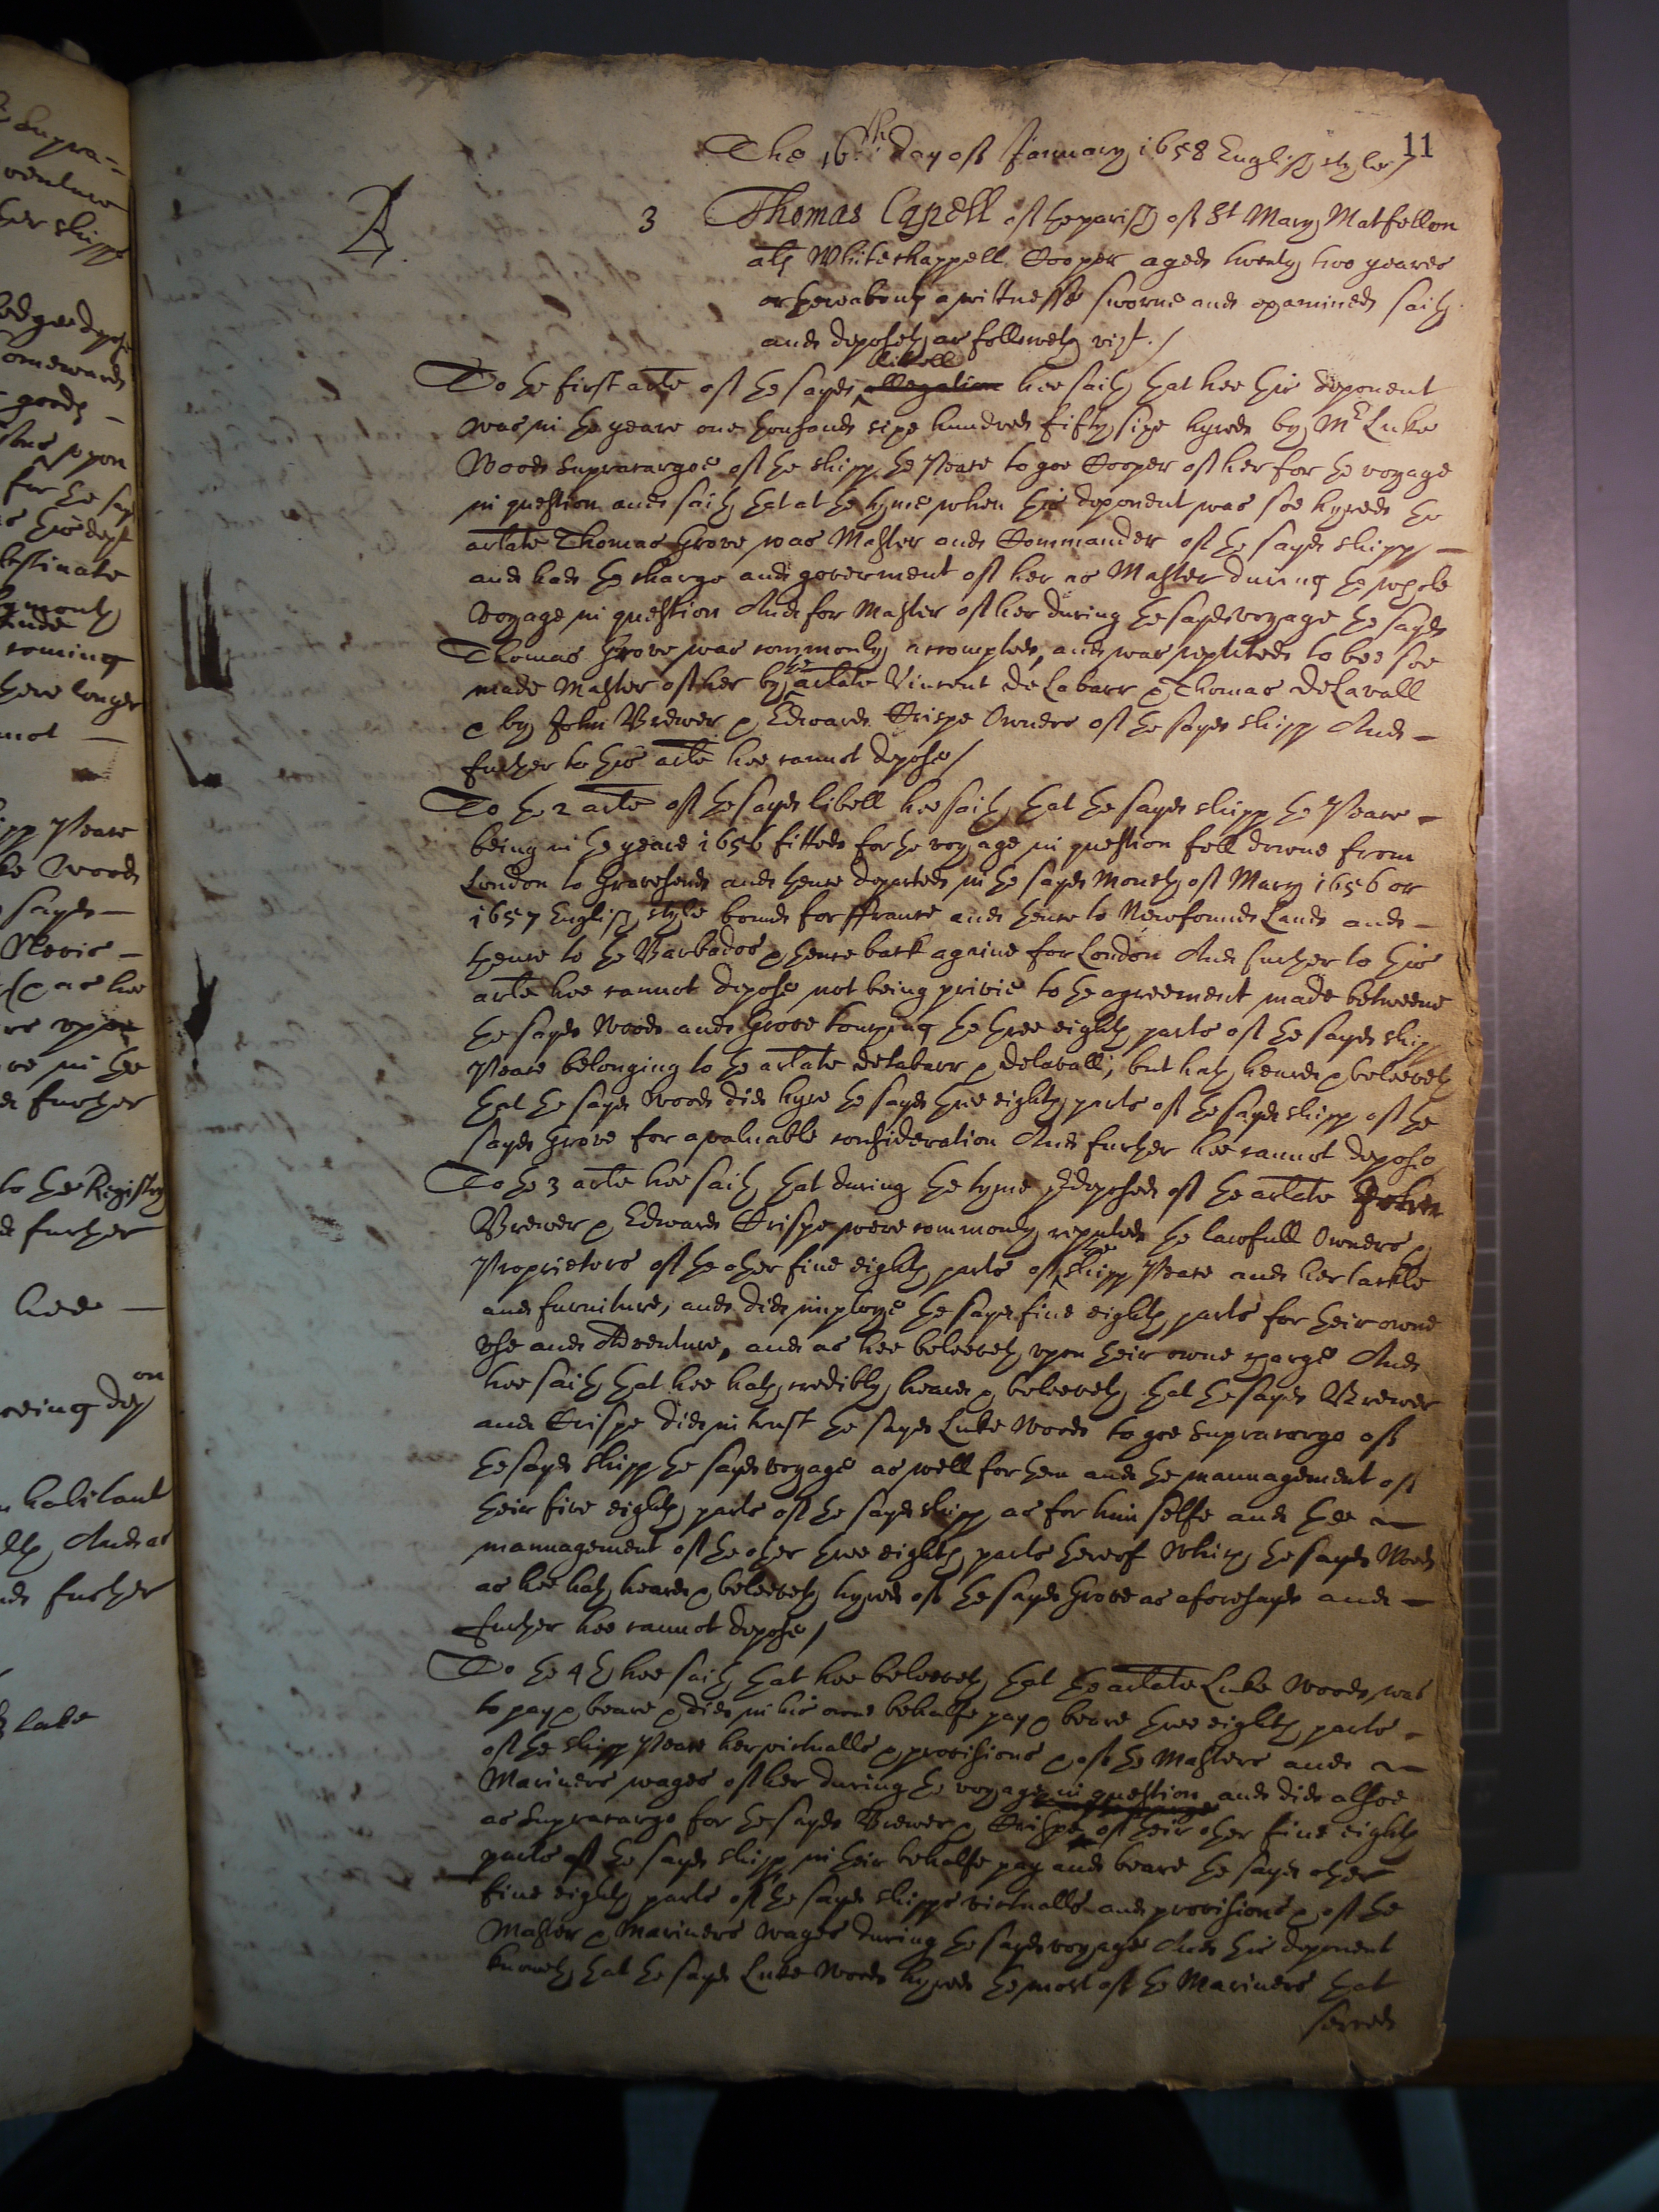 11
The 16th: day of January 1658 English style /
A 3 Thomas Capell of the parish of St Mary Matfellon
als Whitechappell Cooper aged twenty two yeares
or thereabouts a wittnesse sworne and examined saith
and deposeth as followeth vizt. /
libell
To the first arle of the sayd allegation hee saith that hee this deponent
was in the yeare one thousand sixe hundred fifty sixe hyred by Mr Luke
Woods Supracargoe of the shipp the Peare to goe Cooper of her for the voyage
in question and saith that at the tyme when this deponent was soe hyred the
arlate Thomas Grove was Master and Commander of the sayd shipp -
and had the charge and goverment of her as Master during the whole
voyage in question And for Master of her during the sayd voyage the sayd
Thomas Grove was commonly accompted, and was reputed to bee soe
the
made Master of her by arlate Vincent de Labarr & Thomas DeLavall
& by John Brewer & Edward Crispe Owners of the sayd shipp And -
further to this arle hee cannot depose /
To the 2 arle of the sayd libell hee saith that the sayd shipp the Peare -
being in the yeare 1656 fitted for the voyage in question fell downe from
London to Gravesend and thence departed in the sayd Moneth of Mary 1656 or
1657 English style bound for ffrance and thence to Newfound Land and -
thence to the Barbados & thence back againe for London And further to this
arle hee cannot depose not being privie to the agreement made betweene
the sayd Woods and Grove touching the three eighth parts of the sayd shipp
Peare belonging to the arlate delabarr & delavall, but hath heard & beleeveth
that the sayd Woods did hyre the sayd three eighth parts of the sayd shipp of the
sayd Grove for a valuable consideration And further hee cannot depose
To the 3 arle hee saith that during the tyme predeposed of the arlate John
Brewer & Edward Crispe were commonly reputed the lawfull Owners &
the
Proprietors of the other five eighth parts of shipp Peare and her tackle
and furniture, and did imploye the sayd five eighth parts for their owne
use and Adventure, and as hee beleeveth upon their owne charge And
hee saith that hee hath credibly heard & beleeveth that the sayd Brewer
and Crispe did intrust the sayd Luke Woods to goe Supracargo of
the sayd shipp the sayd voyage as well for them and the mannagement of
their five eighth parts of the sayd shipp as for him selfe and the
mannagement of the other three eighth parts thereof which the sayd Woods
as hee hath heard & beleeveth hyred of the sayd Grove as aforesayd and -
further hee cannot depose /
To the 4th hee saith that hee beleeveth that the arlate Luke Woods was
to pay & beare & did in his owne behalfe pay & beare three eighth parts -
of the shipp Peare her victualls & provisions & of the Masters and
Mariners wages of her during the voyage in question and did alsoe
as Supracargo for the sayd Brewer & Crispe of their other five eighth
parts of the sayd shipp in their behalfe pay and beare the sayd other
five eighth parts of the sayd shipps victualls and provisions & of the
Master & Mariners wages during the sayd voyage And this deponent
knoweth that the sayd Luke Woods hyred the most of the Mariners that
served